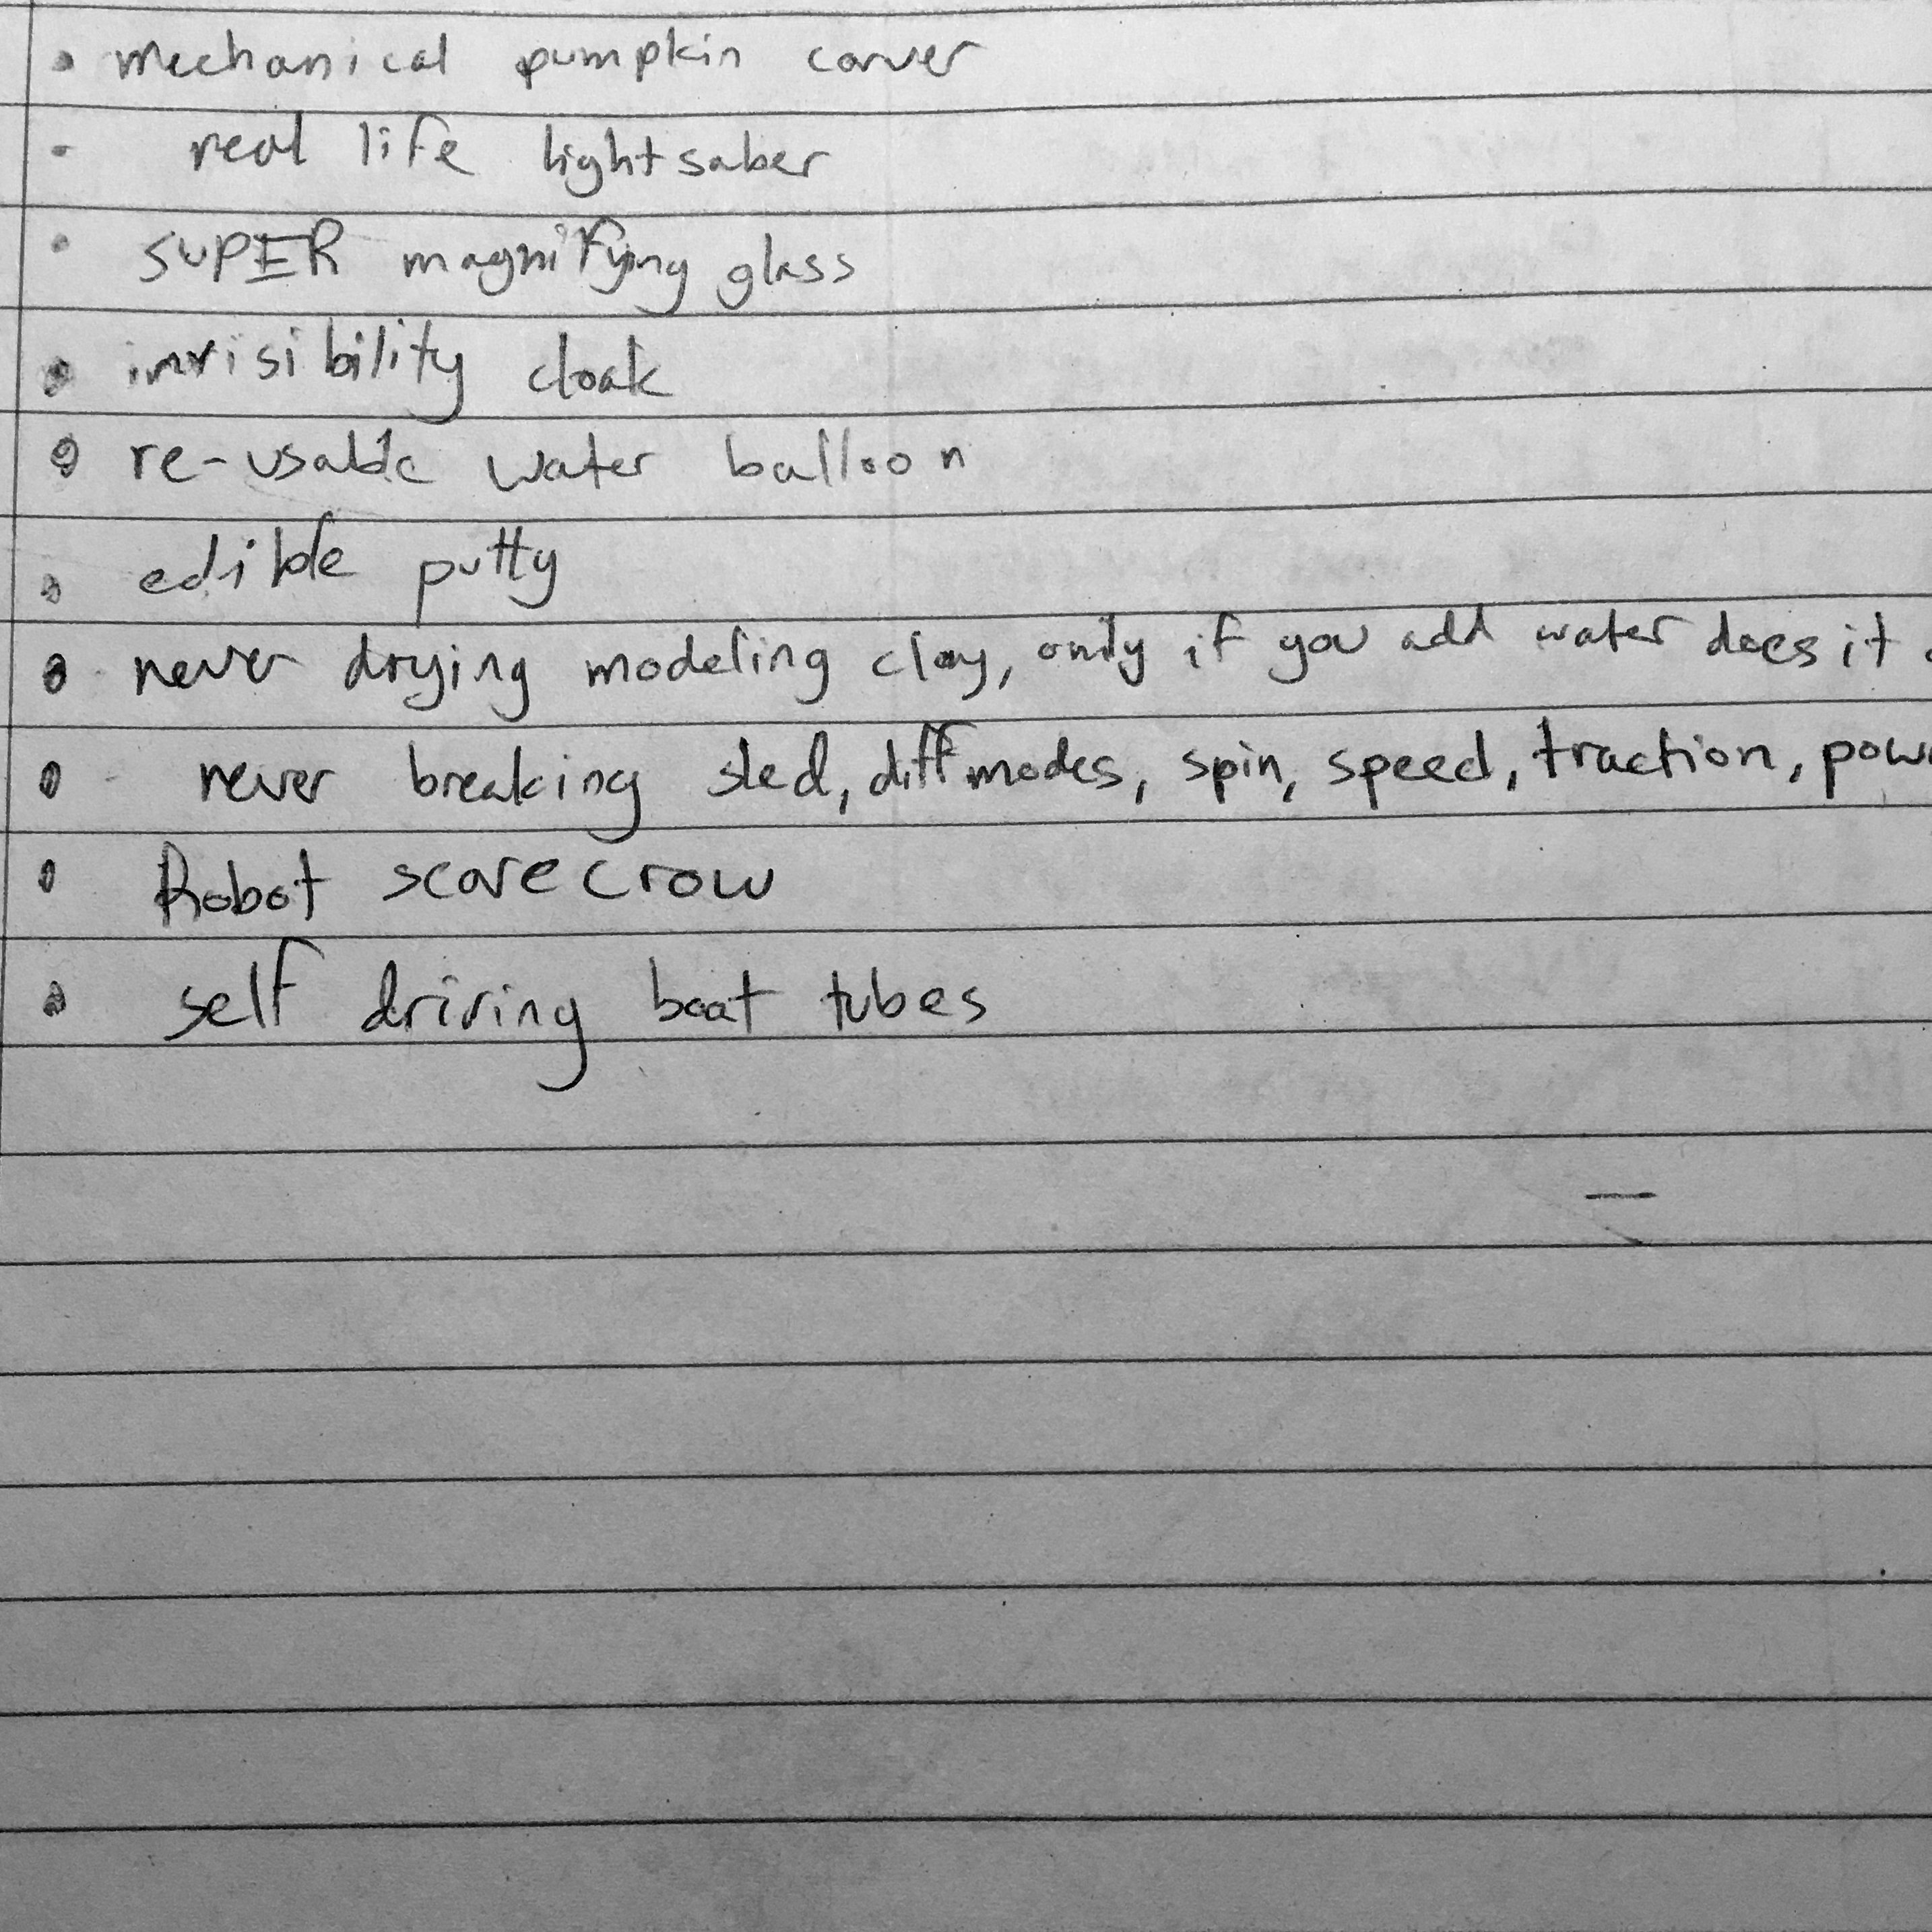 • mechanical pumpkin carver
• real life lightsaber
• SUPER magnifying glass
• invisibility cloak
• re-usable water balloon
• edible putty
• never drying modeling clay, only if you add water does it
• never breaking sled, diff modes, spin, speed, traction,
• Robot scarecrow
• self driving boat tubes